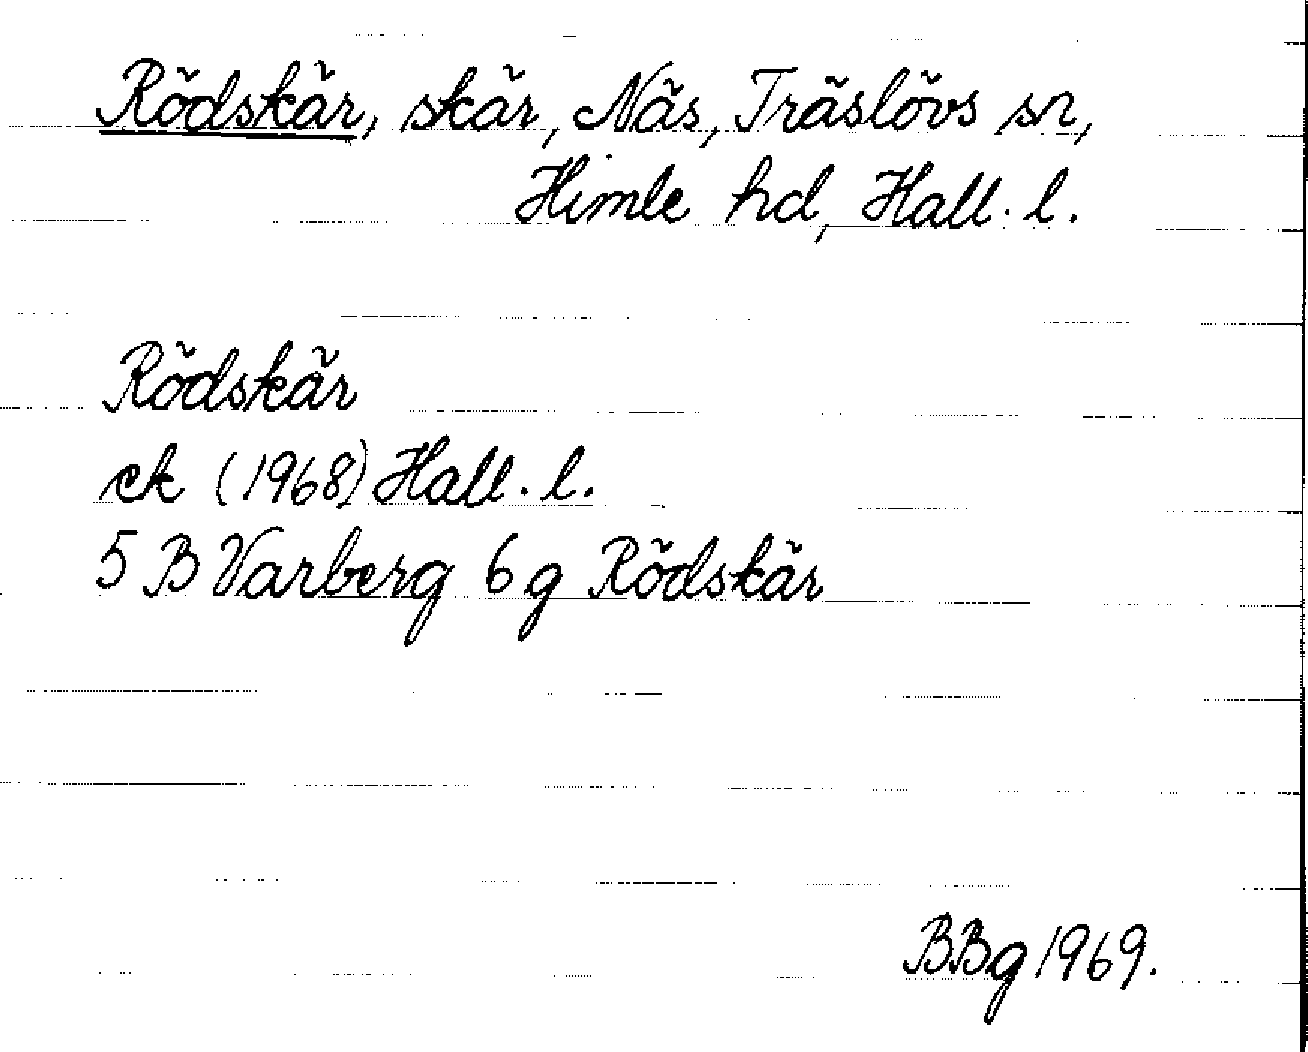 Rödskär, skär, Näs, Träslövs sn,
Himle hd, Hall. l.
Rödskär
ek (1968) Hall. l.
5 B Varberg 6 g Rödskär
BBg 1969.